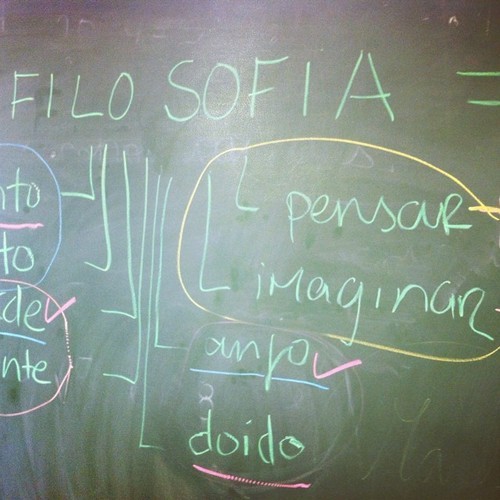 FILOSOFIA =
nto
pensar
to
imaginar
de
anjo
nte
doido